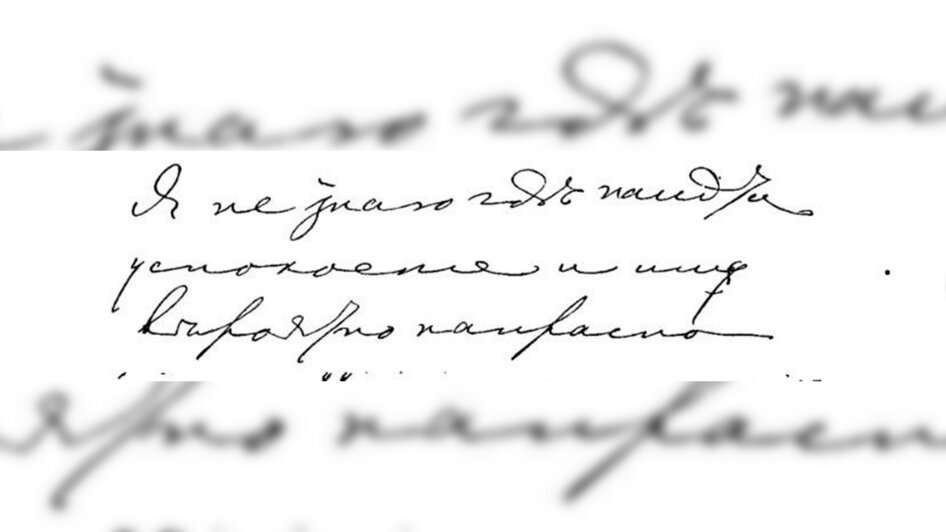 Я не знаю гдѣ найдти
успокоение и ищу
вѣроятно напрасно